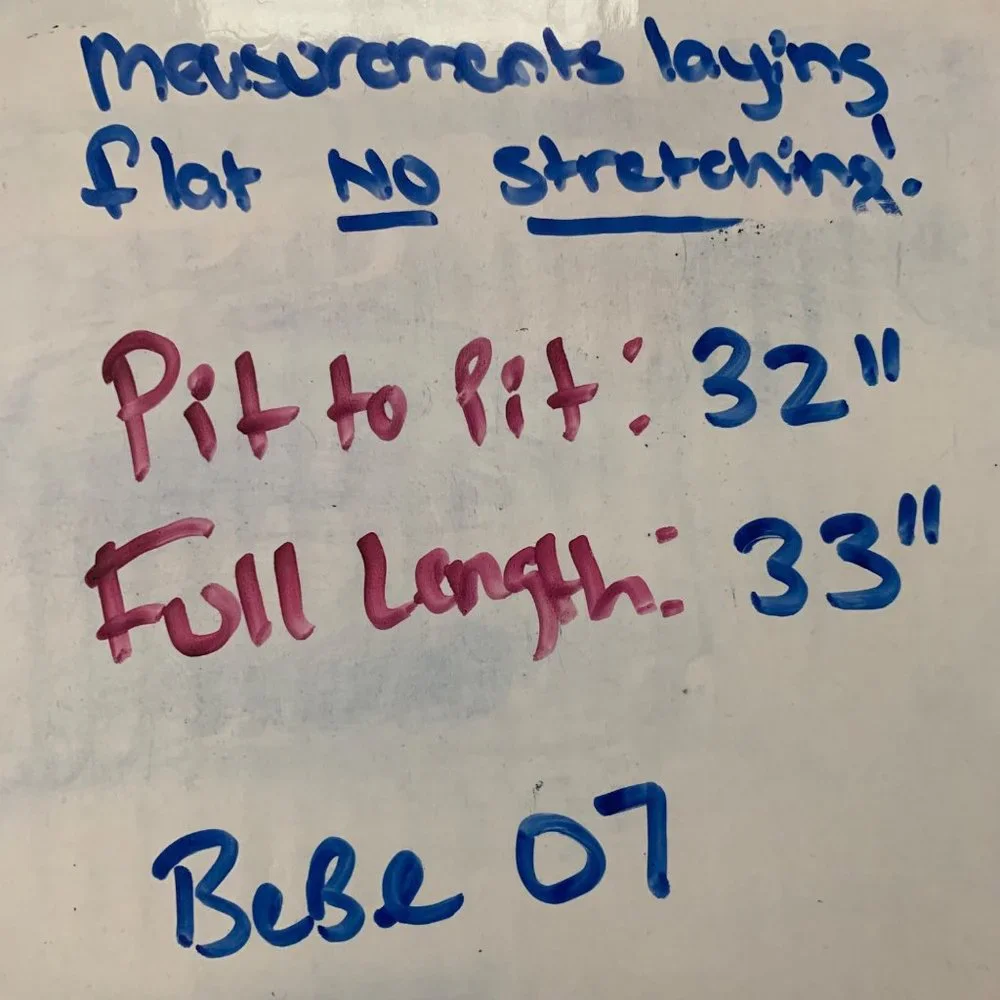 measurements laying
flat NO stretching!
Pit to Pit: 32"
Full Length: 33"
BeBe 07